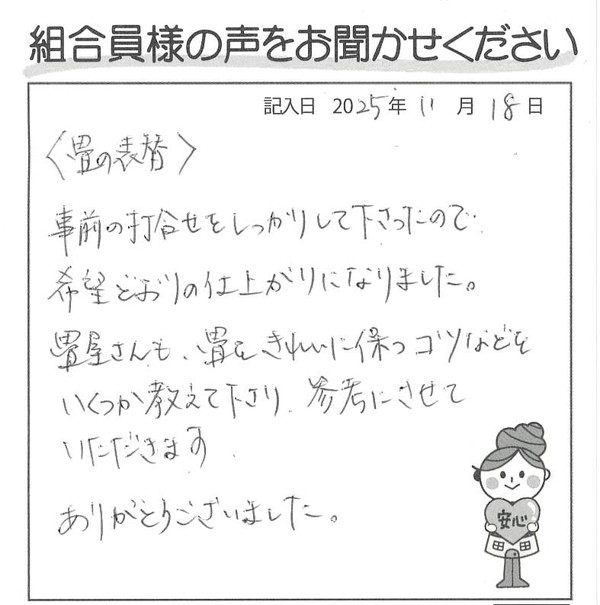 組合員様の声をお聞かせください
記入日 2025年 11月 18日
〈畳の表替〉
事前の打合せをしっかりして下さったので
希望どおりの仕上がりになりました。
畳屋さんも、畳をきれいに保つコツなどを
いくつか教えて下さり、参考にさせて
いただきます
ありがとうございました。
安心